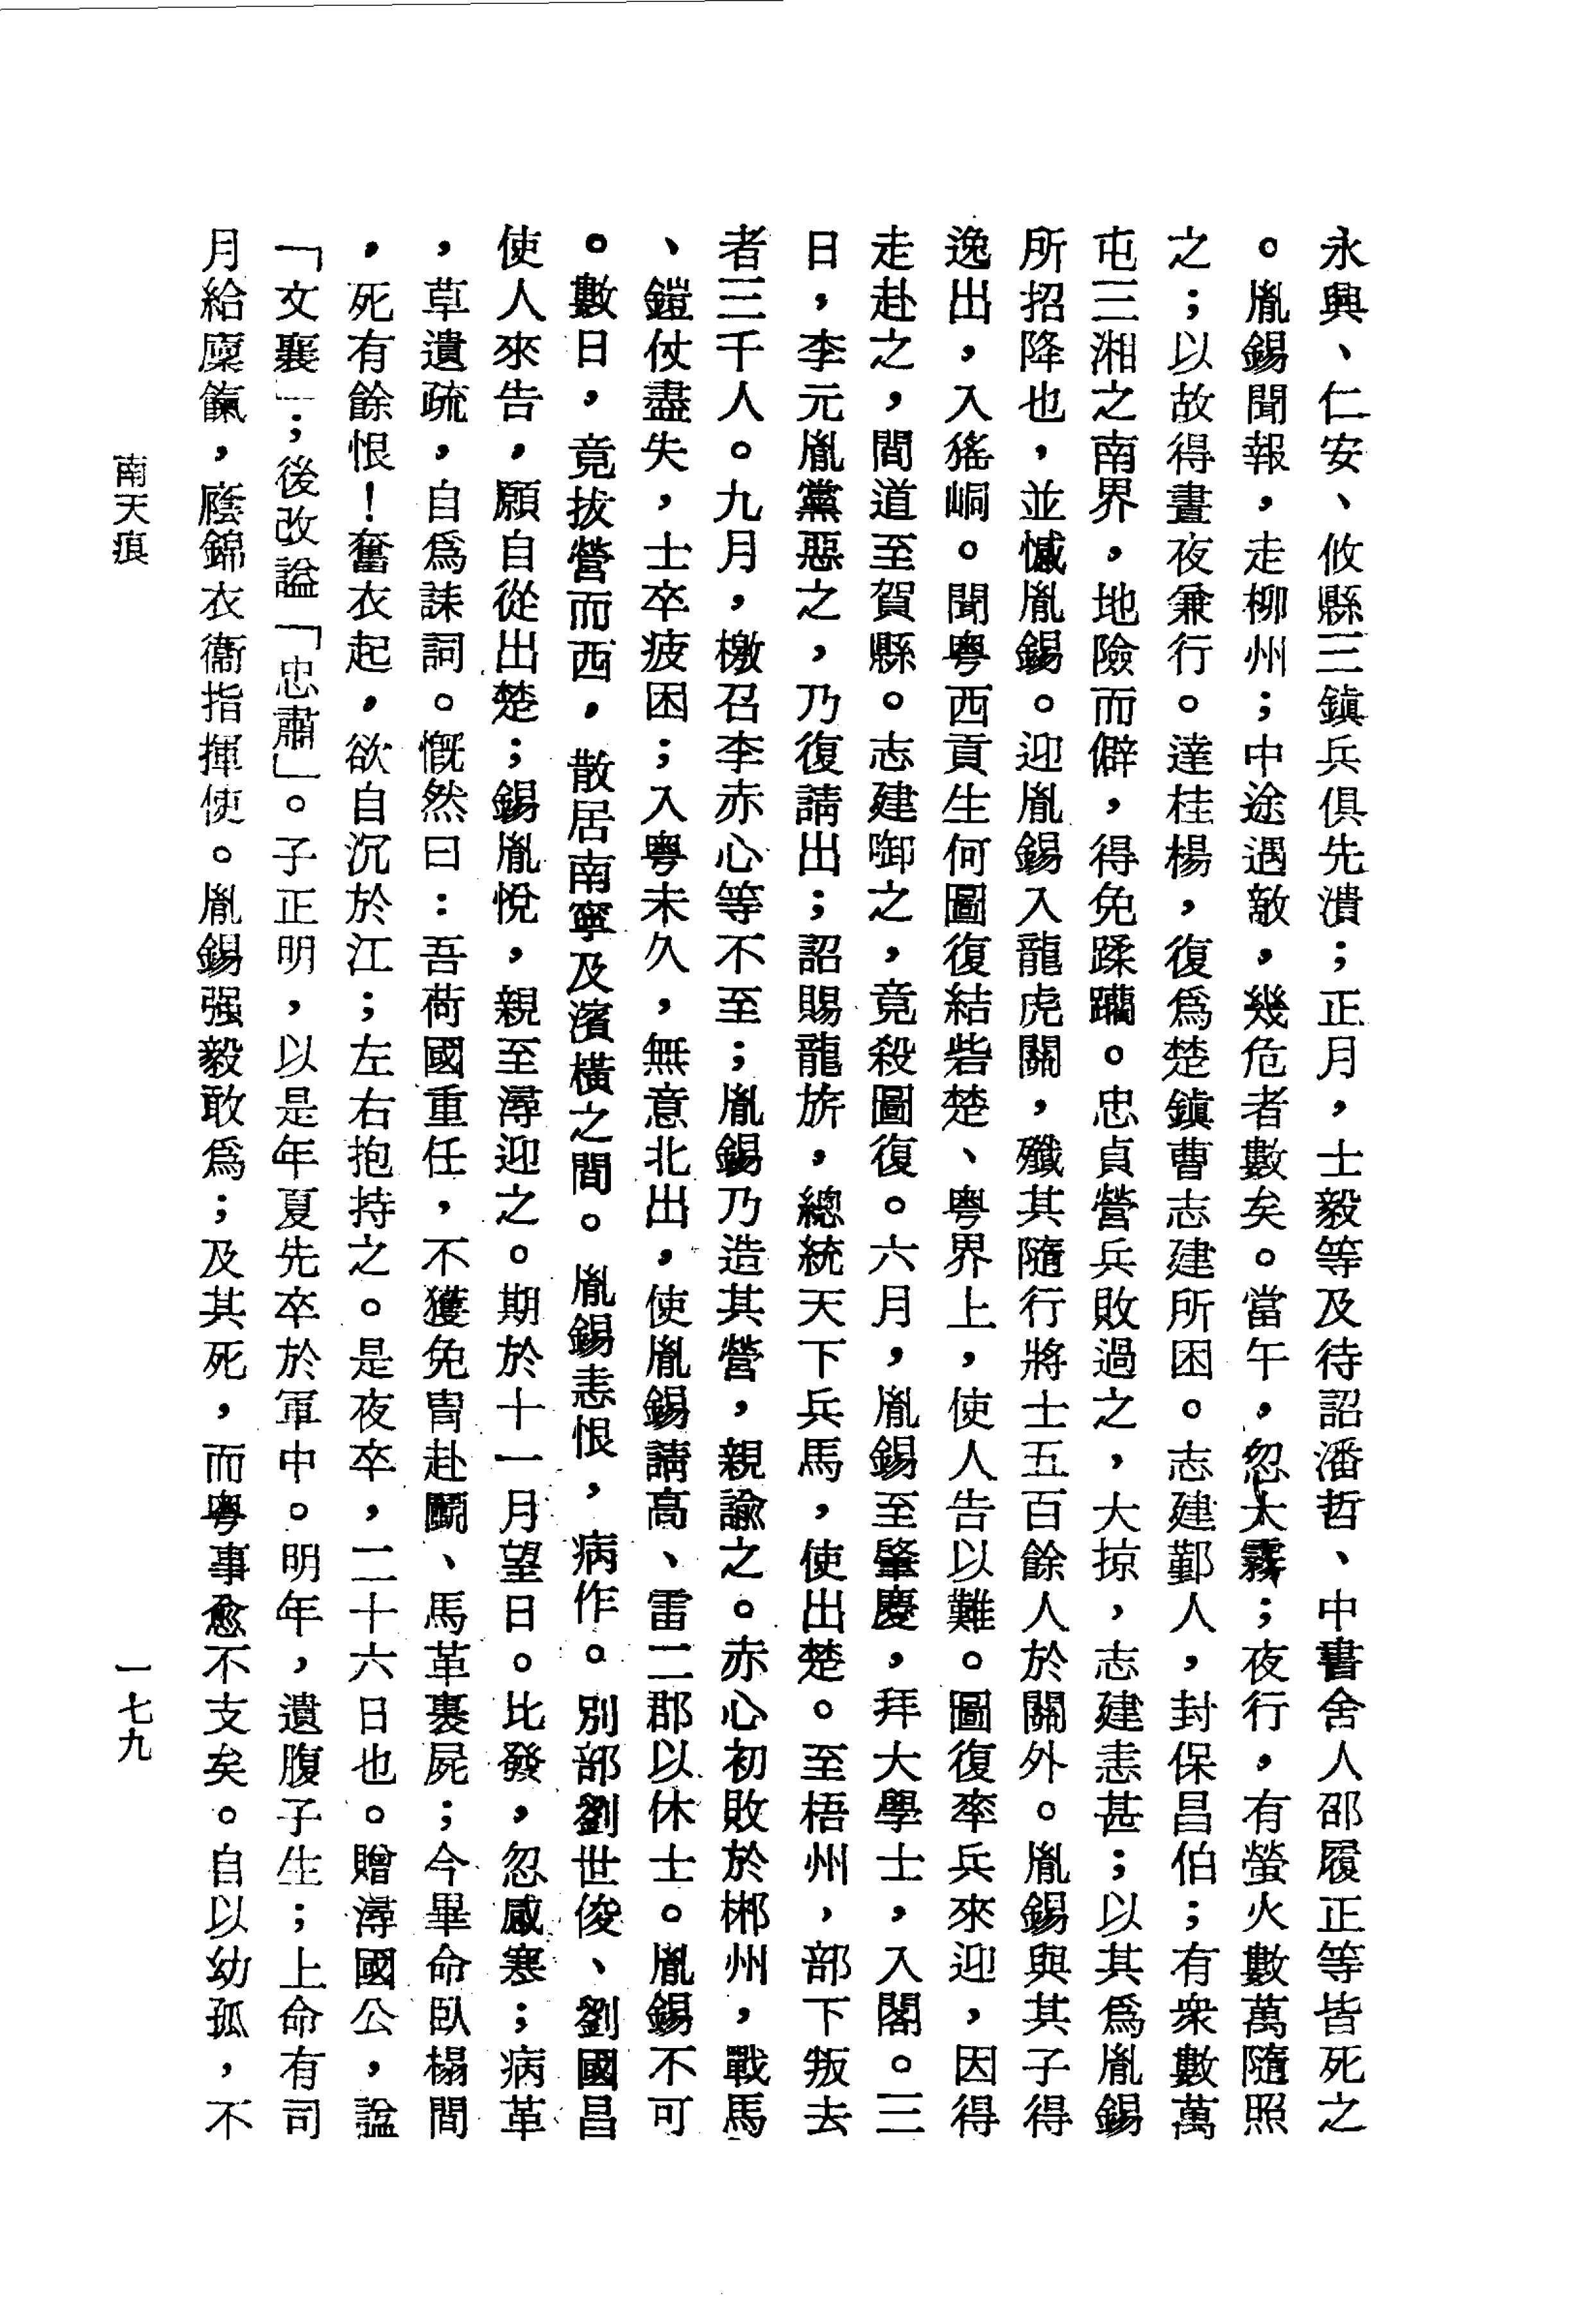 永興、仁安、攸縣三鎮兵俱先潰；正月，士毅等及待詔潘哲、中書舍人邵履正等皆死之
。胤錫聞報，走柳州；中途遇敵，幾危者數矣。當午，忽大霧；夜行，有螢火數萬隨照
之；以故得晝夜兼行。達桂楊，復爲楚鎮曹志建所困。志建鄞人，封保昌伯；有衆數萬
屯三湘之南界，地險而僻，得免蹂躪。忠貞營兵敗過之，大掠，志建恚甚；以其爲胤錫
所招降也，並憾胤錫。迎胤錫入龍虎關，殲其隨行將士五百餘人於關外。胤錫與其子得
逸出，入猺峒。聞粤西貢生何圖復結砦楚、粤界上，使人告以難。圖復率兵來迎，因得
走赴之，間道至賀縣。志建啣之，竟殺圖復。六月，胤錫至肇慶，拜大學士，入閣。三
日，李元胤黨惡之，乃復請出；詔賜龍旂，總統天下兵馬，使出楚。至梧州，部下叛去
者三千人。九月，檄召李赤心等不至；胤錫乃造其營，親諭之。赤心初敗於郴州，戰馬
、鎧仗盡失，士卒疲困；入粤未久，無意北出，使胤錫請高、雷二郡以休士。胤錫不可
。數日，竟拔營而西，散居南寧及濱橫之間。胤錫恚恨，病作。別部劉世俊、劉國昌
使人來告，願自從出楚；錫胤悅，親至潯迎之。期於十一月望日。比發，忽感寒；病革
，草遺疏，自爲誄詞。慨然曰：吾荷國重任，不獲免冑赴鬬、馬革裹屍；今畢命臥榻間
，死有餘恨！奮衣起，欲自沉於江；左右抱持之。是夜卒，二十六日也。贈潯國公，諡
「文襄」；後改諡「忠肅」。子正明，以是年夏先卒於軍中。明年，遺腹子生；上命有司
月給廩餼，廕錦衣衞指揮使。胤錫强毅敢爲；及其死，而粤事愈不支矣。自以幼孤，不
南天痕
一七九